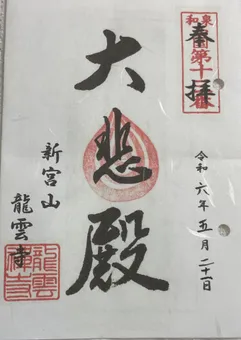 奉拝
和泉
第十
令和六年五月二十一日
大悲殿
新宮山
龍雲寺
龍雲
禅寺